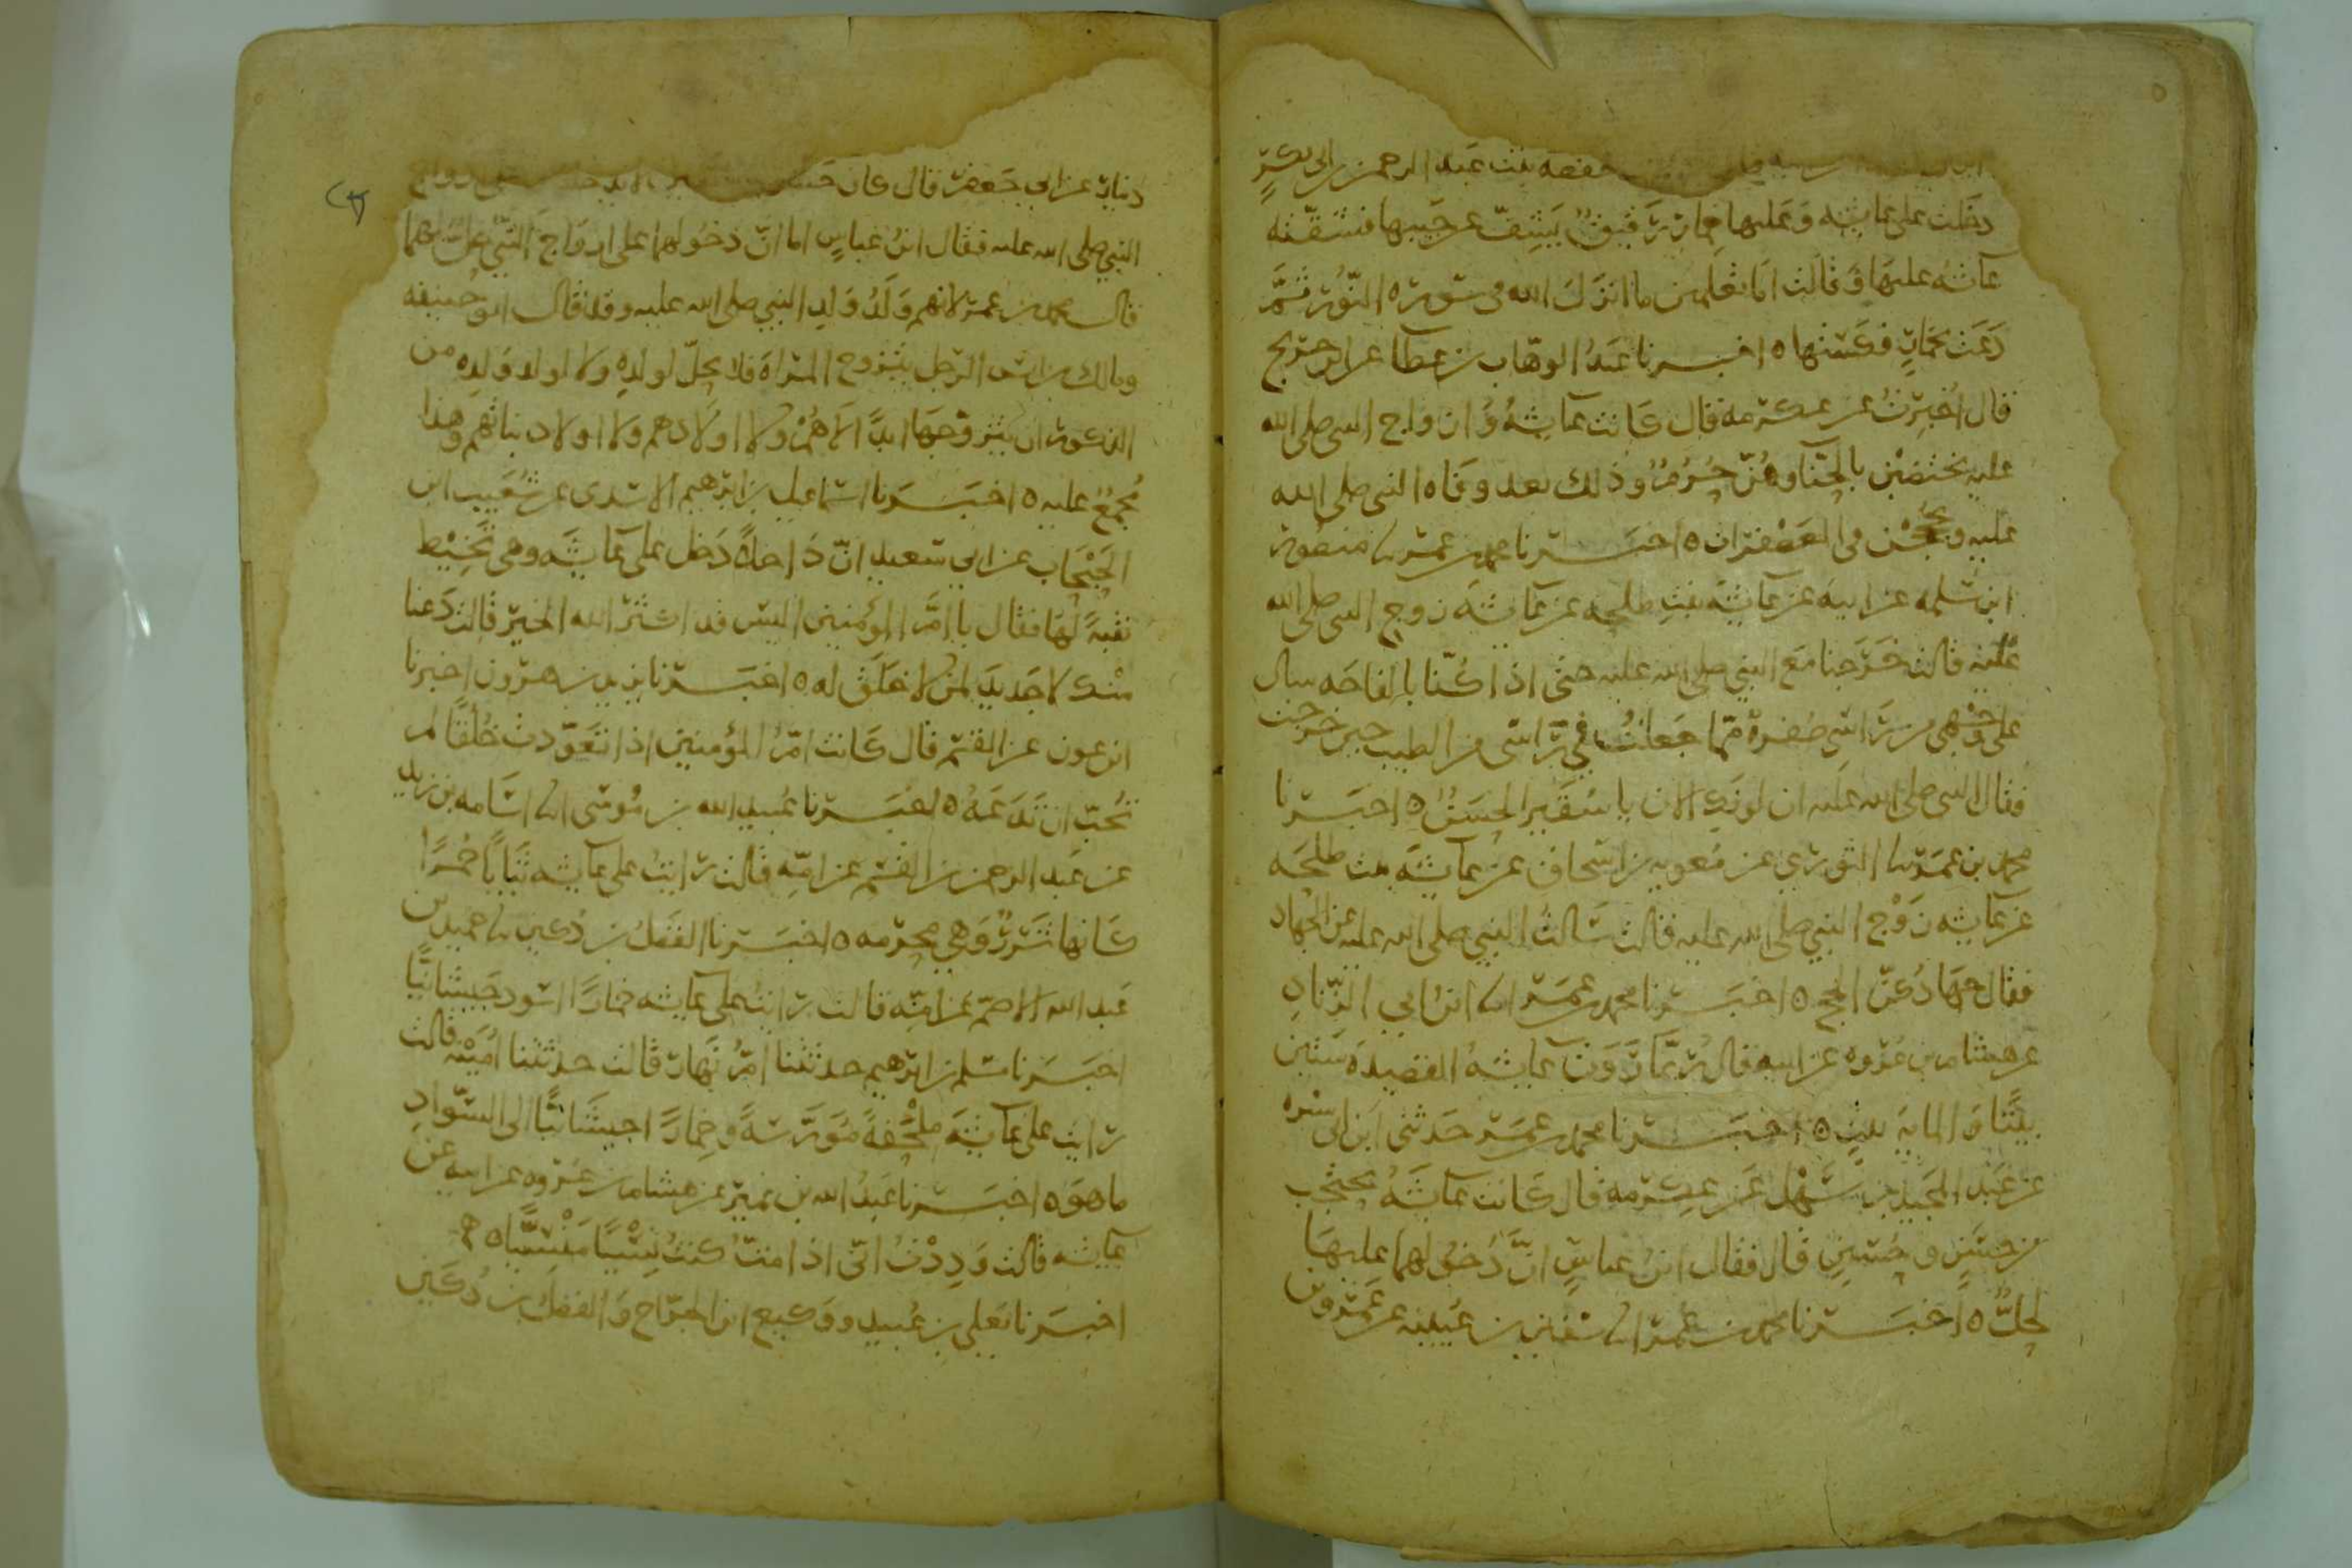 حفصه بنت عبد الرحمن بن ابي بكرٍ
دخلت على عايشه وعليها خمارٌ رَقيقٌ يَشِفّ عن جَيبها فشقّته
عآئشه عليها وَقالت اَما تعلمين ما انزلَ الله في سورة النّور ثمّ
دَعَت بخمارٍ فكستها ٥ اخبرنا عَبدُ الوهّاب بن عطا عن ابن جريج
قال اُخبِرتُ عن عكرمه قال كانت عآيشهُ وَازواج النبي صلى الله
عليه يختضبْن بالحِنّا وهُنّ حُرُمٌ وذلك بعد وفاه النبي صلى الله
عليه ويحججْن في المعَصْفرات ٥ اخبرنا محمد بن عمر ما منصور
ابن سلمه عن ابيه عن عآيشه بنتِ طلحه عن عآيشهَ زوج النبي صلى الله
عليه قالت خَرَجنا مَع النبي صلى الله عليه حتى اذا كُنّا بالقاحَه سال
على وَجْهي من رَاسِي صُفرة مّما جَعلتُ في رَّاسي من الطيب حين خرجت
فقال النبي صلى الله عليه ان لونَكِ الان يا شُقَيرا لَحَسَنٌ ٥ اخبَرنا
محمد بن عمَر ما الثوري عن مُعويه بن اسحاق عن عآيشَه بنت طلحَه
عن عآيشه زَوْج النبي صلى الله عليه قالت سَالتُ النبي صلى الله عليه عن الجهاد
فقال جهَادُكنّ الحج ٥ اخبَرنا محمد بن عمَر انا ابنُ ابي الزّنادِ
عن هشام بن عُروه عن ابيه قال رُبّما رَوَت عآيشهُ القصيدهَ ستين
بيتًا وَالمايةَ بيتٍ ٥ اخبَرنا محمد بن عمَر حَدثني ابن ابي سْبره
عن عَبْد المجيد بن سُهَيْل عَن عِكرمه قال كَانت عآيشَهُ تحتجب
من حسَنٍ وحُسَينٍ قال فقال ابنُ عباسٍ انّ دُخولهما عليهَا
لَحِلٌّ ٥ اخبَرنا محمد بن عمَر انا سفين بن عيينه عن عَمْرو بن
دينارٍ عن ابي جَعفر قال كان حَسَن
النبي صلى الله عليه فقال ابنُ عباسٍ اما انّ دَخُولهما على ازواج النّبي حلٌّ لهما
قال محمد بن عمر لانهم وَلَدُ وَلدِ النبي صلى الله عليه وقد قال ابو حنيفه
ومالك بن انس الرّجل يتزوج المرَاة فلا يحلّ لولدِهِ ولا لولد وَلدِه من
الذكور ان يتزوّجَها ابدًا لاَ هُمْ ولا اولادهم ولا اولاد بناتهم وهذا
مُجمَعٌ عليه ٥ اخبَرَنا اسماعيل بن ابرهيم الاسدى عن شُعَيب ابن
الحَبْحَاب عن ابي سَعيد انّ دَاخلاً دَخل على عآيشَه وهي تَخِيْط
نقبةً لهَا فقال يا امَّ المؤمنين اليس قد اكثرَ الله الخيرَ قالت دَعنا
منْك لا جَديدَ لمَن لا خلَقَ له ٥ اخبَرنا يزيد بن هرون اخبرنا
ابن عون عن القسم قال كانت امّ المؤمنين اذا تعَوّدت خُلُقًا لم
تُحبّ ان تَدَعَهُ ٥ اخبَرنا عُبيد الله بن مُوسَى انا اسَامه بن زيدٍ
عن عَبد الرحمن بن القسم عن امّه قالت رَايتُ على عآيشه ثيابًا حُمْرًا
كانها شرَرٌ وَهي محرمه ٥ اخبَرنا الفَضلُ بن دُكين ما حميد بن
عَبد الله الاصمّ عن امّه قالت رَايتُ على عآيشه خمارًا اسْود جَيشانيًّا
اخبَرَنا مسلم بن ابرهيم حدثتنا امّ نَهار قالت حدثتنا اُمَيْنه قالت
رَايت على عآئشه ملْحَفةً مُوَرّسةً وخِمارًا جيشَانيًّا الى السّوادِ
ما هوَ ٥ اخبَرنا عَبدُ الله بن نمير عن هشام بن عُروه عن ابيه عن
عآيشه قالت وَدِدْتُ انّى اذا متّ كنتُ نِسْيًا مَنْسِيًّا ٥
اخبرَنا يَعلى بن عُبيد ووَكيع ابن الجرّاح وَالفضلُ بن دُكَين